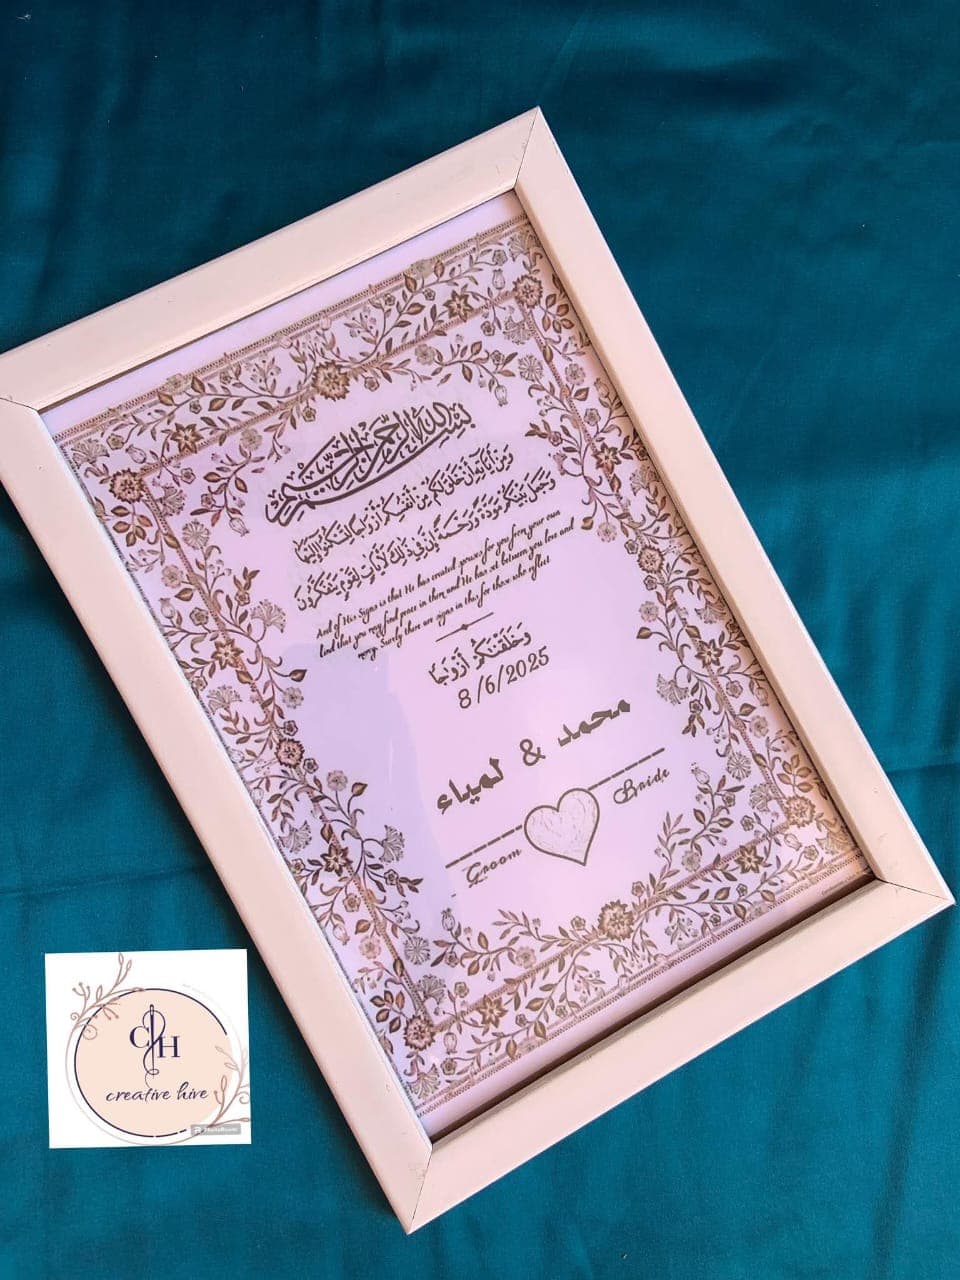 بسم الله الرحمن الرحيم
وَمِنْ آيَاتِهِ أَنْ خَلَقَ لَكُم مِّنْ أَنفُسِكُمْ أَزْوَاجًا لِّتَسْكُنُوا إِلَيْهَا
وَجَعَلَ بَيْنَكُم مَّوَدَّةً وَرَحْمَةً إِنَّ فِي ذَٰلِكَ لَآيَاتٍ لِّقَوْمٍ يَتَفَكَّرُونَ
And of His Signs is that He has created spouses for you from your own
kind that you may find peace in them and He has set between you love and
mercy. Surely there are signs in this for those who reflect
وَخَلَقْنَٰكُمْ أَزْوَٰجًا
8/6/2025
محمد & لمياء
Groom Bride
CH
creative hive
PhotoRoom